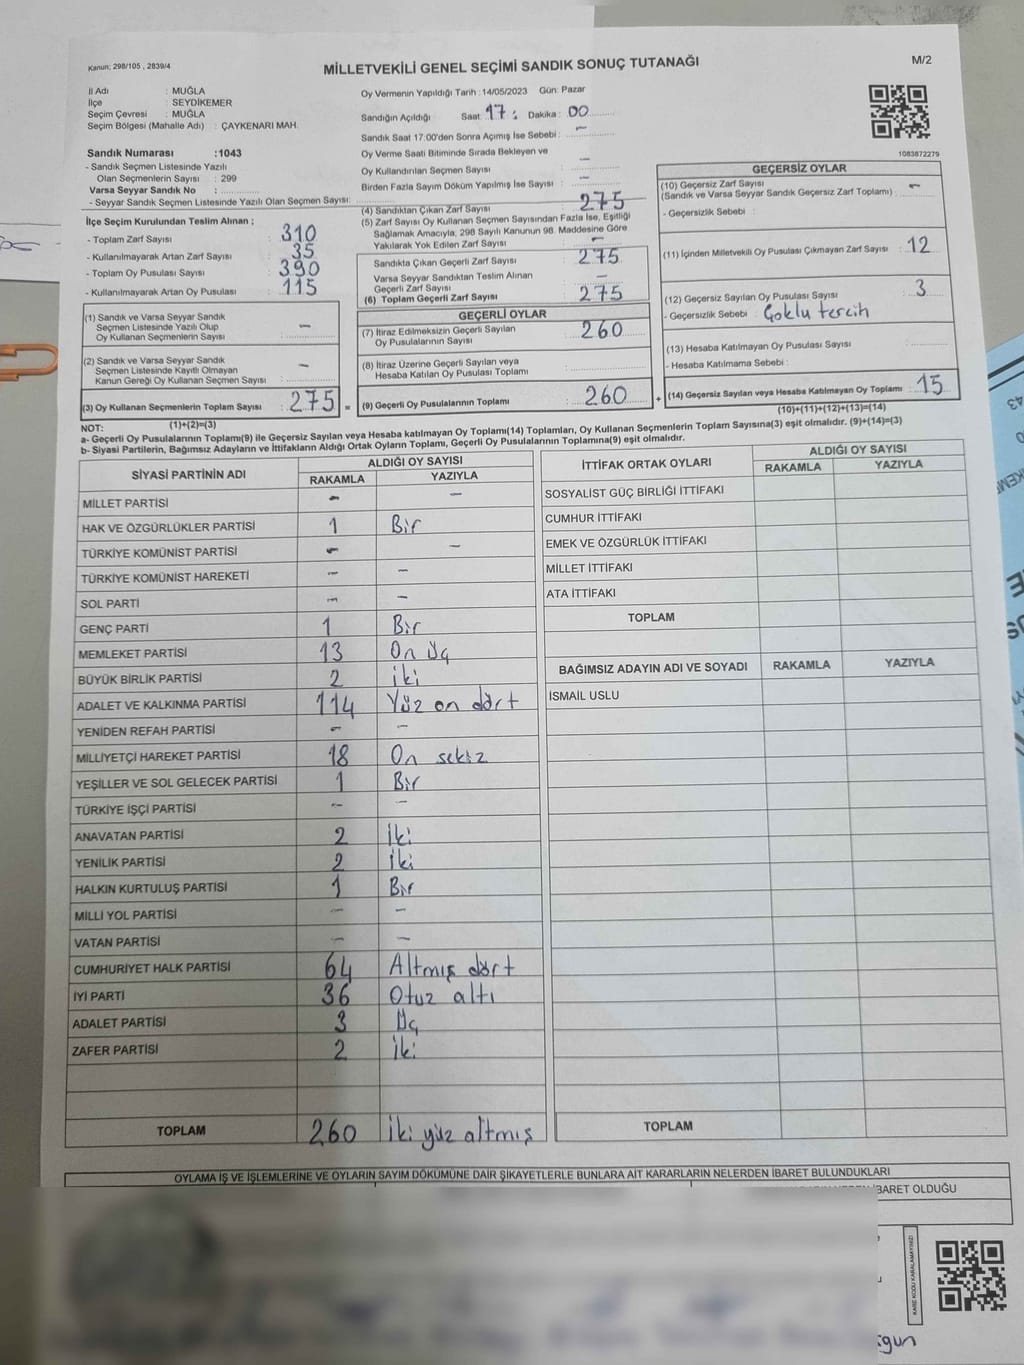 Kanun: 298/105 , 2839/4
MİLLETVEKİLİ GENEL SEÇİMİ SANDIK SONUÇ TUTANAĞI
M/2
İl Adı : MUĞLA
İlçe : SEYDİKEMER
Seçim Çevresi : MUĞLA
Seçim Bölgesi (Mahalle Adı) : ÇAYKENARI MAH.
Oy Vermenin Yapıldığı Tarih : 14/05/2023 Gün: Pazar
Sandığın Açıldığı Saat 17 : Dakika : 00
Sandık Saat 17:00'den Sonra Açımış İse Sebebi : –
Oy Verme Saati Bitiminde Sırada Bekleyen ve
Oy Kullandırılan Seçmen Sayısı : –
Birden Fazla Sayım Döküm Yapılmış İse Sayısı : –
1083872279
Sandık Numarası : 1043
- Sandık Seçmen Listesinde Yazılı
Olan Seçmenlerin Sayısı : 299
Varsa Seyyar Sandık No :
- Seyyar Sandık Seçmen Listesinde Yazılı Olan Seçmen Sayısı:
İlçe Seçim Kurulundan Teslim Alınan ;
- Toplam Zarf Sayısı : 310
- Kullanılmayarak Artan Zarf Sayısı : 35
- Toplam Oy Pusulası Sayısı : 390
- Kullanılmayarak Artan Oy Pusulası : 115
(1) Sandık ve Varsa Seyyar Sandık
Seçmen Listesinde Yazılı Olup
Oy Kullanan Seçmenlerin Sayısı : –
(2) Sandık ve Varsa Seyyar Sandık
Seçmen Listesinde Kayıtlı Olmayan
Kanun Gereği Oy Kullanan Seçmen Sayısı : –
(3) Oy Kullanan Seçmenlerin Toplam Sayısı : 275 =
(1)+(2)=(3)
(4) Sandıktan Çıkan Zarf Sayısı : 275
(5) Zarf Sayısı Oy Kullanan Seçmen Sayısından Fazla İse, Eşitliği
Sağlamak Amacıyla, 298 Sayılı Kanunun 98. Maddesine Göre
Yakılarak Yok Edilen Zarf Sayısı : –
Sandıkta Çıkan Geçerli Zarf Sayısı : 275
Varsa Seyyar Sandıktan Teslim Alınan
Geçerli Zarf Sayısı : –
(6) Toplam Geçerli Zarf Sayısı : 275
GEÇERLİ OYLAR
(7) İtiraz Edilmeksizin Geçerli Sayılan
Oy Pusulalarının Sayısı : 260
(8) İtiraz Üzerine Geçerli Sayılan veya
Hesaba Katılan Oy Pusulası Toplamı :
(9) Geçerli Oy Pusulalarının Toplamı : 260 +
GEÇERSİZ OYLAR
(10) Geçersiz Zarf Sayısı
(Sandık ve Varsa Seyyar Sandık Geçersiz Zarf Toplamı) : –
- Geçersizlik Sebebi :
(11) İçinden Milletvekili Oy Pusulası Çıkmayan Zarf Sayısı : 12
(12) Geçersiz Sayılan Oy Pusulası Sayısı : 3
- Geçersizlik Sebebi : Çoklu tercih
(13) Hesaba Katılmayan Oy Pusulası Sayısı :
- Hesaba Katılmama Sebebi :
(14) Geçersiz Sayılan veya Hesaba Katılmayan Oy Toplamı : 15
(10)+(11)+(12)+(13)=(14)
NOT:
a- Geçerli Oy Pusulalarının Toplamı(9) ile Geçersiz Sayılan veya Hesaba katılmayan Oy Toplamı(14) Toplamları, Oy Kullanan Seçmenlerin Toplam Sayısına(3) eşit olmalıdır. (9)+(14)=(3)
b- Siyasi Partilerin, Bağımsız Adayların ve İttifakların Aldığı Ortak Oyların Toplamı, Geçerli Oy Pusulalarının Toplamına(9) eşit olmalıdır.
SİYASİ PARTİNİN ADI ALDIĞI OY SAYISI
RAKAMLA YAZIYLA
MİLLET PARTİSİ – –
HAK VE ÖZGÜRLÜKLER PARTİSİ 1 Bir
TÜRKİYE KOMÜNİST PARTİSİ – –
TÜRKİYE KOMÜNİST HAREKETİ – –
SOL PARTİ – –
GENÇ PARTİ 1 Bir
MEMLEKET PARTİSİ 13 On Üç
BÜYÜK BİRLİK PARTİSİ 2 İki
ADALET VE KALKINMA PARTİSİ 114 Yüz on dört
YENİDEN REFAH PARTİSİ – –
MİLLİYETÇİ HAREKET PARTİSİ 18 On sekiz
YEŞİLLER VE SOL GELECEK PARTİSİ 1 Bir
TÜRKİYE İŞÇİ PARTİSİ – –
ANAVATAN PARTİSİ 2 İki
YENİLİK PARTİSİ 2 İki
HALKIN KURTULUŞ PARTİSİ 1 Bir
MİLLİ YOL PARTİSİ – –
VATAN PARTİSİ – –
CUMHURİYET HALK PARTİSİ 64 Altmış dört
İYİ PARTİ 36 Otuz altı
ADALET PARTİSİ 3 Üç
ZAFER PARTİSİ 2 İki
TOPLAM 260 İki yüz altmış
İTTİFAK ORTAK OYLARI ALDIĞI OY SAYISI
RAKAMLA YAZIYLA
SOSYALİST GÜÇ BİRLİĞİ İTTİFAKI
CUMHUR İTTİFAKI
EMEK VE ÖZGÜRLÜK İTTİFAKI
MİLLET İTTİFAKI
ATA İTTİFAKI
TOPLAM
BAĞIMSIZ ADAYIN ADI VE SOYADI RAKAMLA YAZIYLA
İSMAİL USLU
TOPLAM
OYLAMA İŞ VE İŞLEMLERİNE VE OYLARIN SAYIM DÖKÜMÜNE DAİR ŞİKAYETLERLE BUNLARA AİT KARARLARIN NELERDEN İBARET BULUNDUKLARI
BARET OLDUĞU
KARE KODU KARALAMAYINIZ!